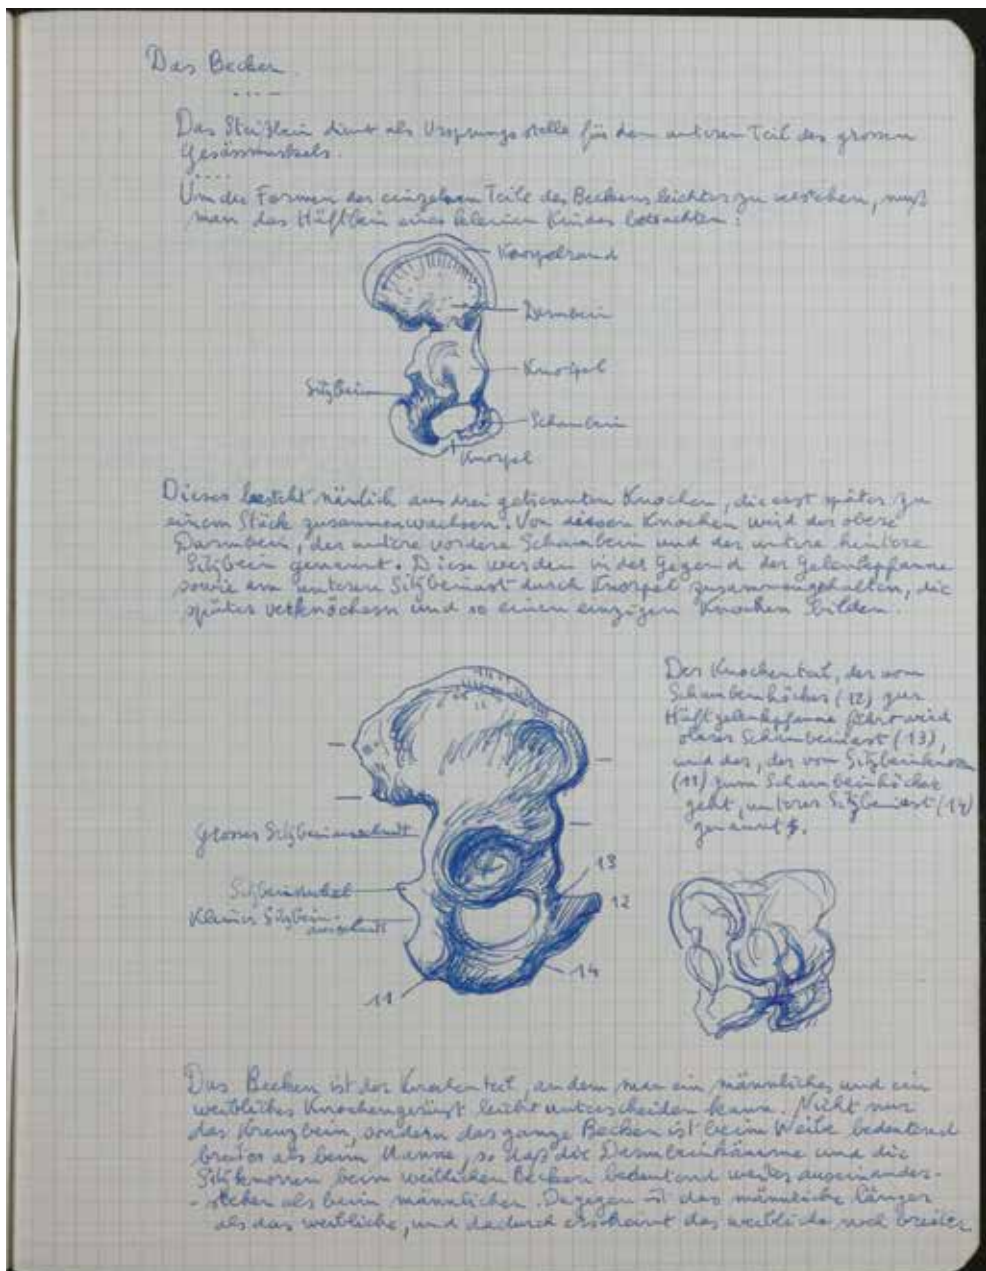 Das Becken.
Das Steißbein dient als Ursprungsstelle für den unteren Teil des grossen
Gesässmuskels.
Um die Formen der einzelnen Teile des Beckens leichter zu verstehen, muß
man das Hüftbein eines kleinen Kindes betrachten:
Knorpelrand
Darmbein
Knorpel
Sitzbein
Schambein
Knorpel
Dieses besteht nämlich aus drei getrennten Knochen, die erst später zu
einem Stück zusammenwachsen. Von diesen Knochen wird der obere
Darmbein, der untere vordere Schambein und der untere hintere
Sitzbein genannt. Diese werden in der Gegend der Gelenkpfanne
sowie am unteren Sitzbeinast durch Knorpel zusammengehalten, die
später verknöchern und so einen einzigen Knochen bilden.
Der Knochenteil, der vom
Schambeinhöcker (12) zur
Hüftgelenkpfanne führt wird
oberer Schambeinast (13),
und der, der vom Sitzbeinknorren
(11) zum Schambeinhöcker
geht, unterer Sitzbeinast (14)
genannt.
Grosser Sitzbeinausschnitt
Sitzbeinstachel
Kleiner Sitzbein-
ausschnitt
13
12
14
11
Das Becken ist der Knochenteil, an dem man ein männliches und ein
weibliches Knochengerüst leicht unterscheiden kann. Nicht nur
das Kreuzbein, sondern das ganze Becken ist beim Weibe bedeutend
breiter als beim Manne, so daß die Darmbeinkämme und die
Sitzknorren beim weiblichen Becken bedeutend weiter auseinander-
- stehen als beim männlichen. Dagegen ist das männliche länger
als das weibliche, und dadurch erscheint das weibliche noch breiter